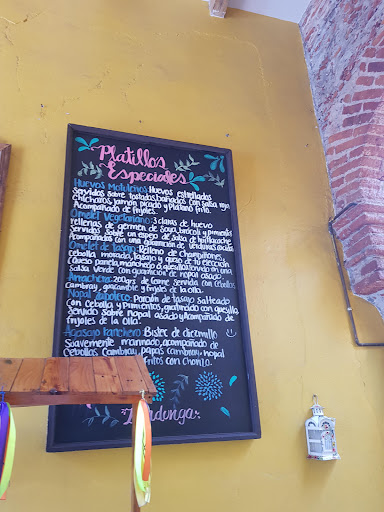 Platillos
Especiales
Huevos Motuleños: Huevos estrellados
Servidos sobre tostadas, bañados con salsa roja
Chicharos, jamón picado y plátano frito.
Acompañado de frijoles.
Omelet Vegetariano: 3 claras de huevo
rellenas de gérmen de soya, brócoli y pimientos
Servidas sobre un espejo de salsa de huitlacoche
Acompañadas con una guarnición de verduras asadas
Omelet de Tasajo: Relleno de Champiñones,
Cebolla morada, Tasajo y queso de tu elección
(queso panela, manchego ó quesillo) servido en una
Salsa Verde con guarnición de nopal asado.
Arrachera: 200grs de Carne Servida con Cebollas
Cambray, guacamole y frijoles de la olla.
Nopal Azteca: Porción de tasajo salteado
con Cebolla y Pimientos, gratinado con quesillo
Servido Sobre Nopal asado y Acompañado de
frijoles de la olla.
Atasajo Ranchero: Bistec de diezmillo
Suavemente marinado, acompañado de
Cebollas Cambray, papas cambray, nopal
fritos con Chorizo.
Zandunga